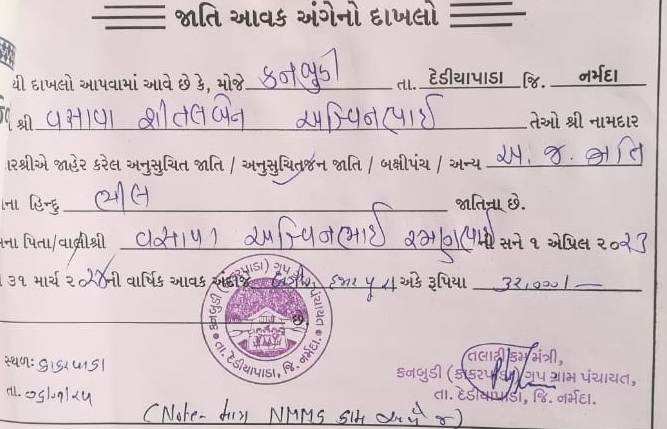 જાતિ આવક અંગેનો દાખલો
થી દાખલો આપવામાં આવે છે કે, મોજે કનબુડી તા. દેડીયાપાડા જિ. નર્મદા
શ્રી વસાવા શીતલબેન અશ્વિનભાઈ તેઓ શ્રી નામદાર
ારશ્રીએ જાહેર કરેલ અનુસુચિત જાતિ / અનુસુચિતજન જાતિ / બક્ષીપંચ / અન્ય અ. જ. જાતિ
ના હિન્દુ ભીલ જાતિના છે.
ના પિતા/વાલીશ્રી વસાવા અશ્વિનભાઈ રમણભાઈ ની સને ૧ એપ્રિલ ૨૦૨૩
૩૧ માર્ચ ૨૦૨૪ની વાર્ષિક આવક અંદાજે બત્રીસ હજાર પુરા અંકે રૂપિયા 32,000/-
છે.
કનબુડી (કાકરપાડા) ગૃપ ગ્રામ પંચાયત
તા. દેડીયાપાડા, જિ. નર્મદા.
સ્થળ: કાકરપાડા
તલાટી કમ મંત્રી,
કનબુડી (કાકરપાડા) ગૃપ ગ્રામ પંચાયત,
તા. દેડીયાપાડા, જિ. નર્મદા.
તા.
(Note- માત્ર NMMS કામ અર્થે જ)